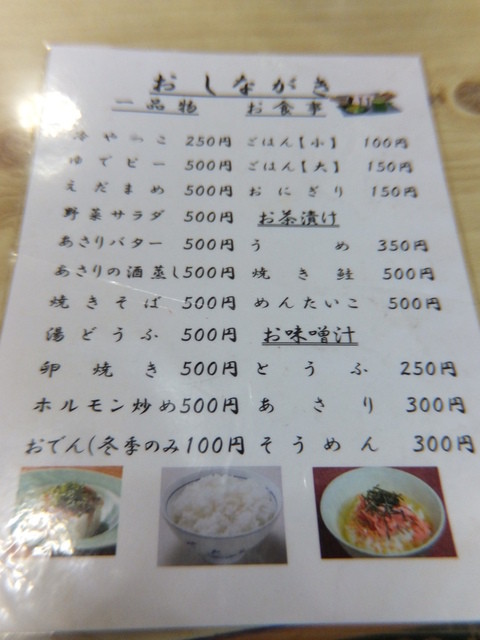 おしながき
一品物 お食事
冷やっこ 250円 ごはん【小】 100円
ゆでピー 500円 ごはん【大】 150円
えだまめ 500円 おにぎり 150円
野菜サラダ 500円 お茶漬け
あさりバター 500円 うめ 350円
あさりの酒蒸し500円 焼き鮭 500円
焼きそば 500円 めんたいこ 500円
湯どうふ 500円 お味噌汁
卵焼き 500円 とうふ 250円
ホルモン炒め500円 あさり 300円
おでん(冬季のみ100円 そうめん 300円